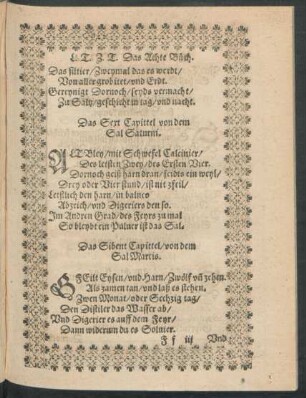 L. T. Z. T. Das Achte Bůch.
Das filtier/ Zweymal das es werdt/
Von aller grobitet/ vnd Erdt.
Gereynigt Dornoch/ seyds vernacht/
Zu Saltz/ geschicht in tag/ vnd nacht.
Das Sext Capittel von dem
Sal Saturni.
ALT Bley/ mit Schwefel Calcinier/
Des leisten Zwey/ des Ersten Vier.
Dornoch geiß harn dran/ seidts ein weyl/
Drey oder Vier stund/ ist nit zfeil/
Letstlich den harn/ in balneo
Abzeich/ vnd Digeriers den so.
Im Andren Grad/ des Feyrs zu mal
So bleybt ein Puluer ist das Sal.
Das Sibent Capittel/ von dem
Sal Martis.
GFEilt Eysen/ vnd Harn/ Zwölf vñ zehen.
Als zamen tan/ vnd laß es stehen.
Zwen Monat/ oder Sechzig tag/
Den Distiler das Wasser ab/
Vnd Digerier es auff dem Feyr/
Dann widerum du es Soluier.
F f iij Vnd